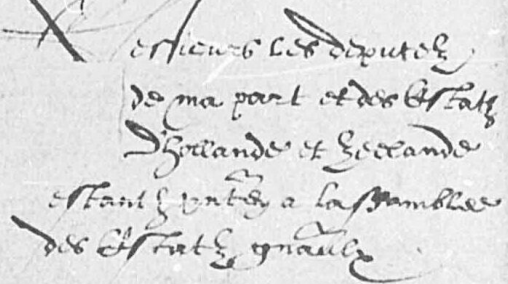 Messieurs les deputez
de ma part et des Estatz
d'hollande et zeelande
estantz pntez a lassamblee
des Estatz gnaulx